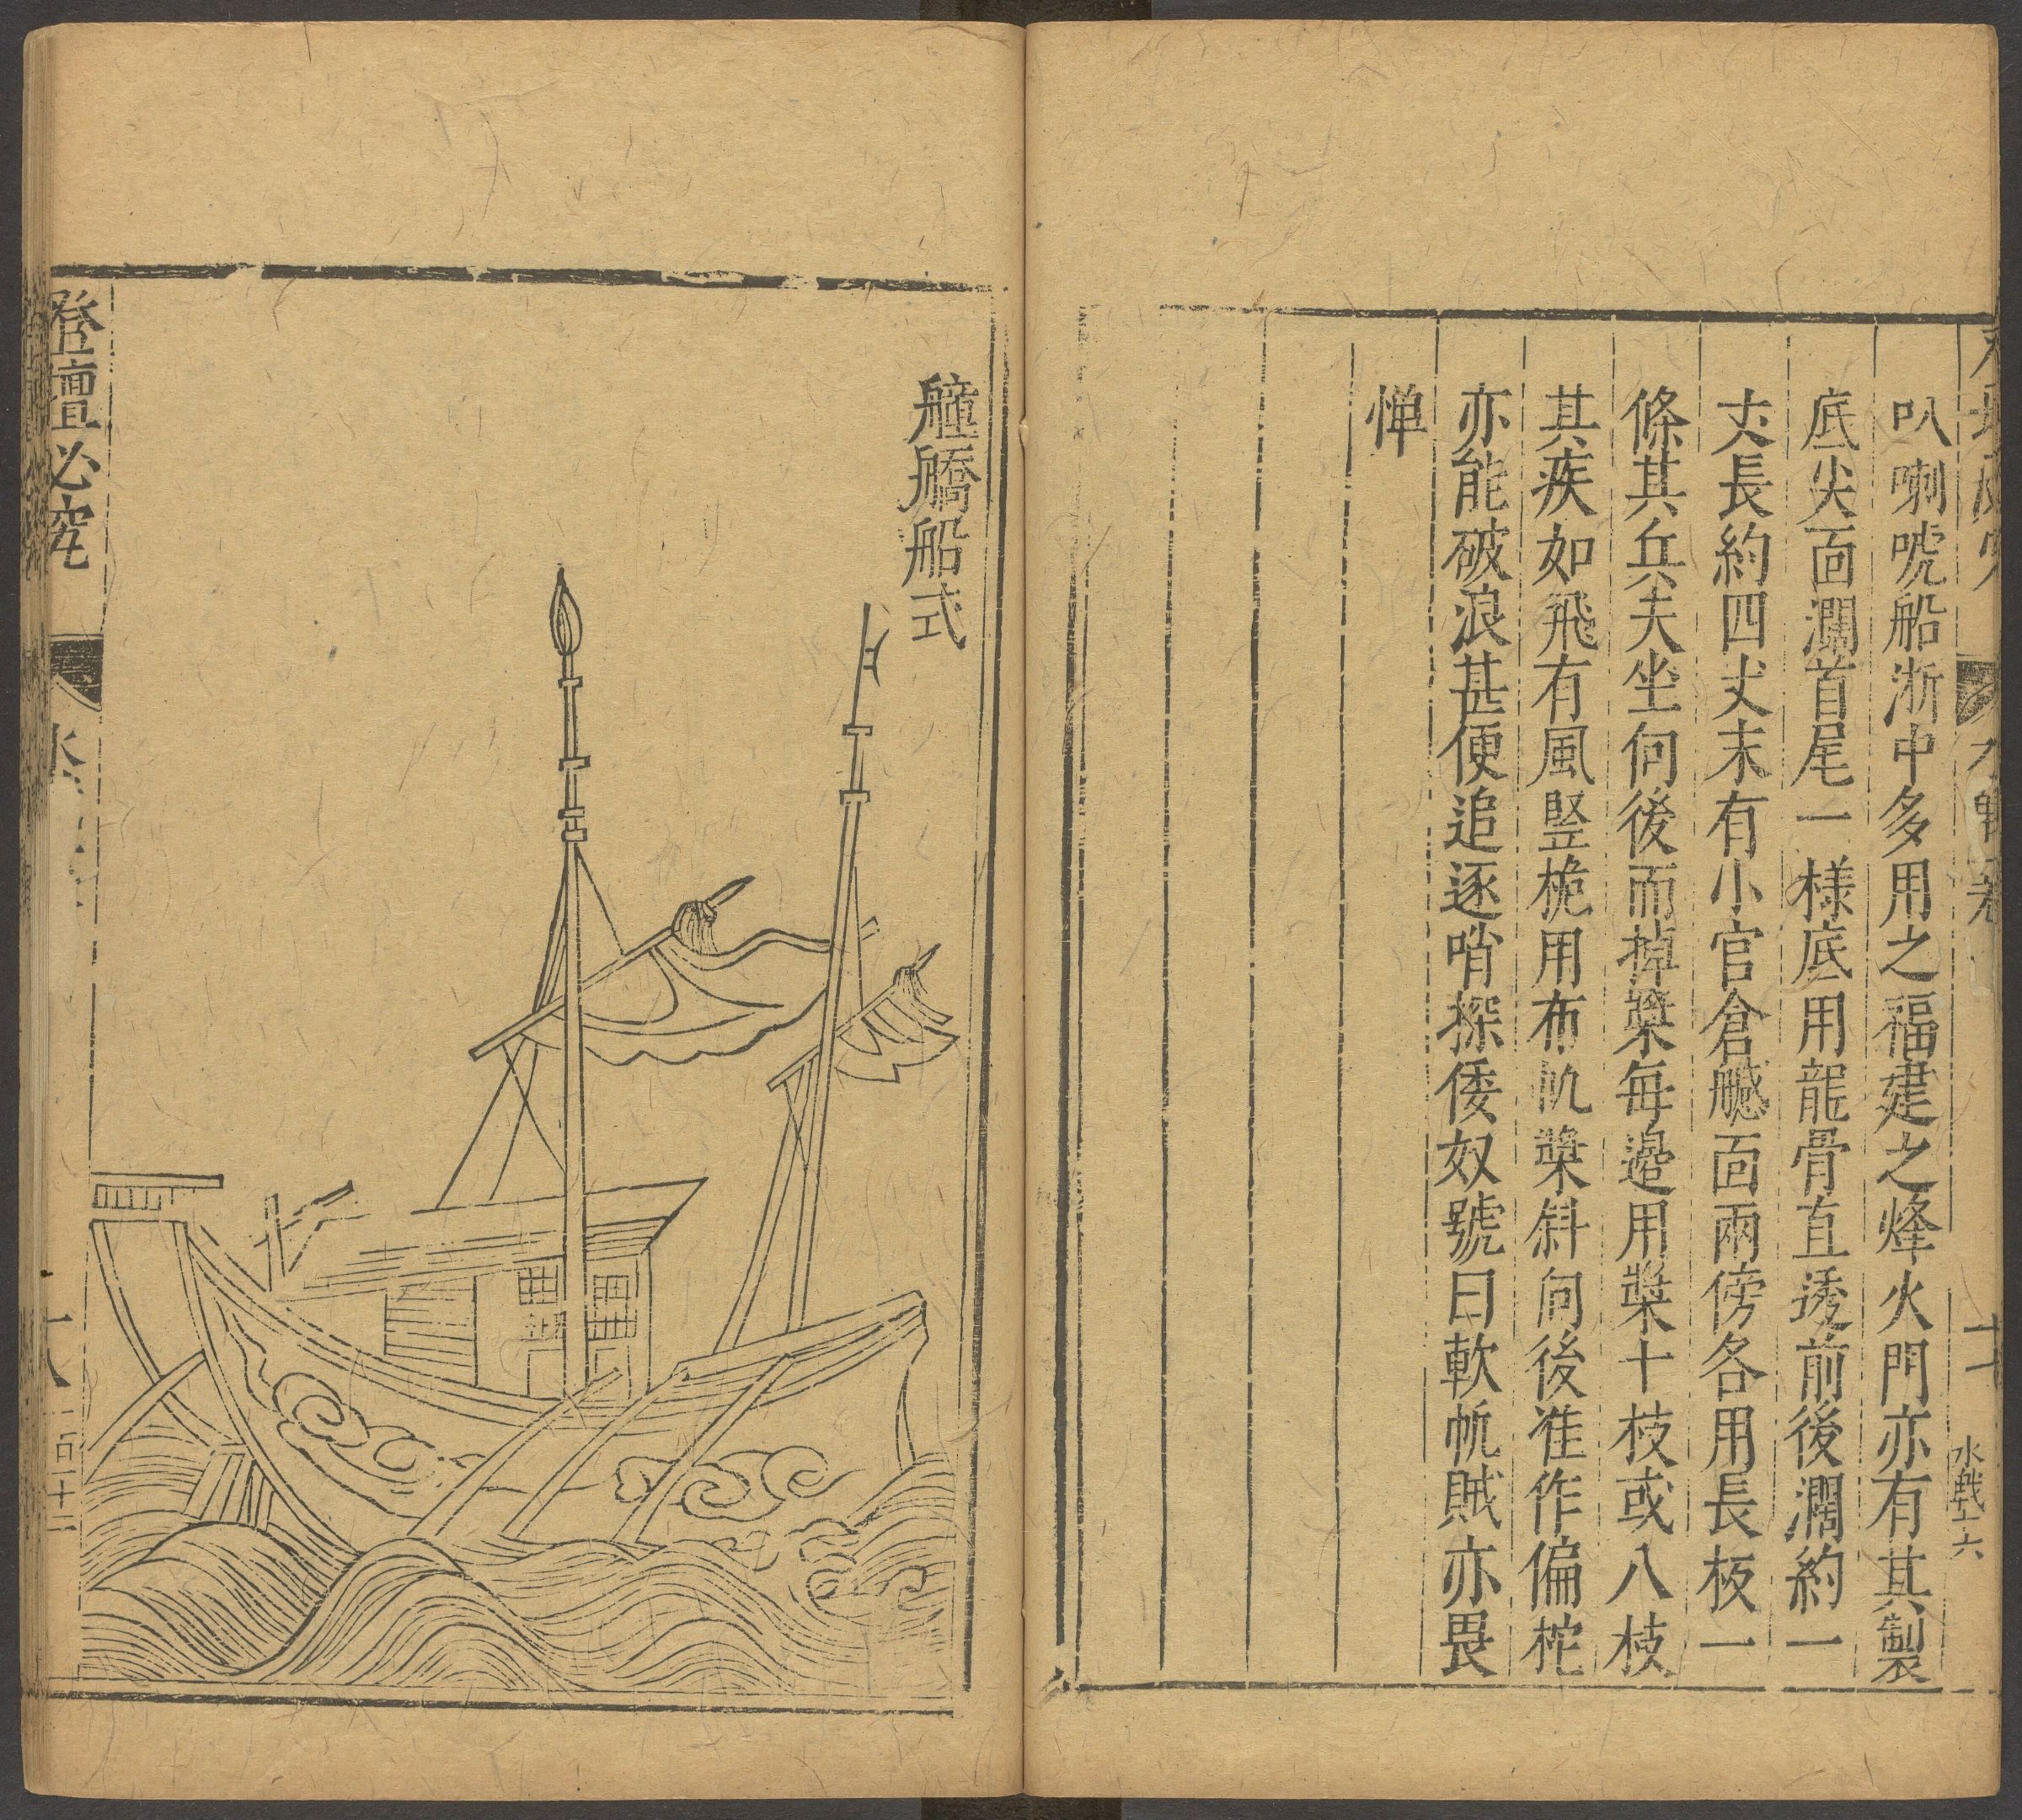 叭喇唬船浙中多用之福建之烽火門亦有其製
底尖面濶首尾一樣底用龍骨直透前後濶約一
丈長約四丈末有小官倉艦面兩傍各用長板一
條其兵夫坐向後而掉槳每邉用槳十枝或八枝
其疾如飛有風竪桅用布帆槳斜向後准作偏柁
亦能破浪甚便追逐哨探倭奴號曰軟帆賊亦畏
憚
水戰十六
艟艢船式
登壇必究
水
十八
一百十二